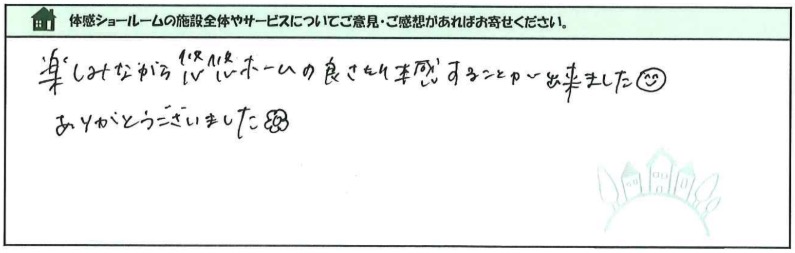 体感ショールームの施設全体やサービスについてご意見・ご感想があればお寄せください。
楽しみながら悠悠ホームの良さを体感することが出来ました
ありがとうございました